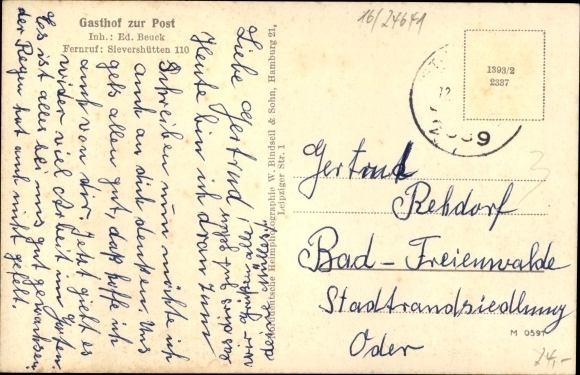 Gasthof zur Post
Inh.: Ed. Beuck
Fernruf: Sievershütten 110
16/24641
1393/2
2387
Liebe Gertrud!
Heute bin ich dran zum
Schreiben nun möchte ich
auch an dich denken. Uns
gehts allen gut, das hoffe ich
auch von dir. Jetzt giebt es
wider viel Arbeit im Garten.
Es ist alles bei uns gut gewachsen
der Regen hat auch nicht gefehlt.
Norddeutsche Heimphotographie W. Bindseil & Sohn, Hamburg 21,
Leipziger Str. 1
Gertrud
Rehdorf
Bad-Freienwalde
Stadtrandsiedlung
Oder
M 0597
24,-